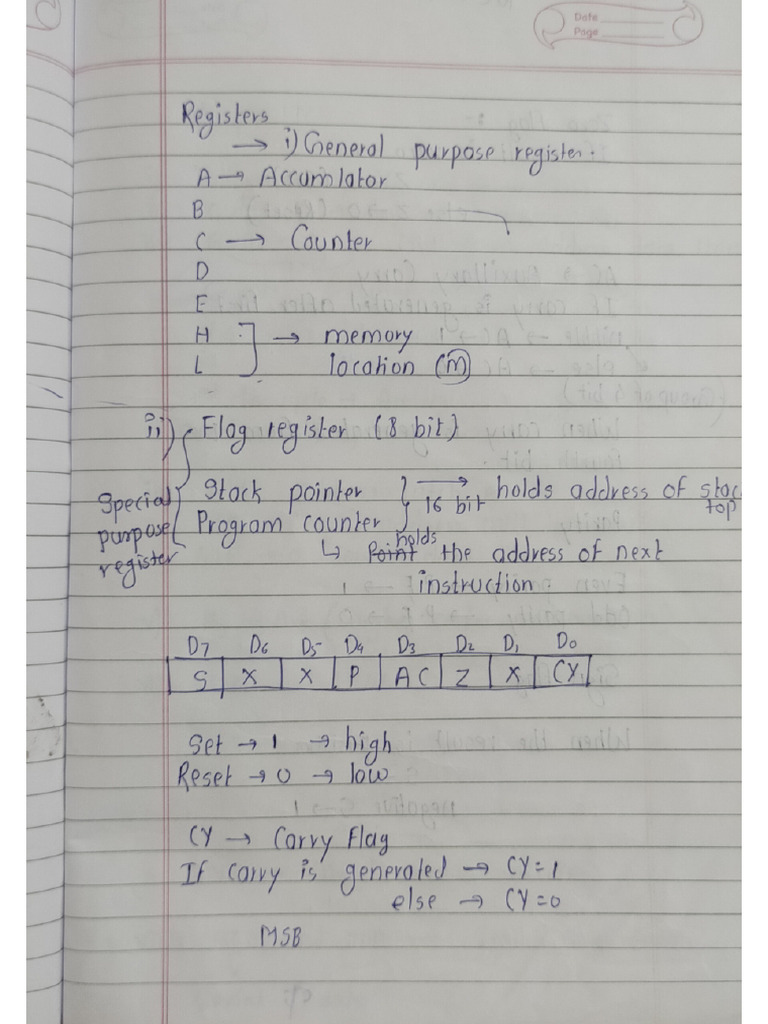 Date
Page
Registers
→ i) General purpose register.
A → Accumlator
B
C → Counter
D
E
H → memory
L location (M)
ii) Flag register (8 bit)
Stack pointer → 16 bit holds address of stac
top
Special purpose register
Program counter
↳ Point holds the address of next
instruction
D7 D6 D5 D4 D3 D2 D1 D0
S X X P AC Z X CY
Set → 1 → high
Reset → 0 → low
CY → Carry Flag
If carry is generaled → CY=1
else → CY=0
MSB